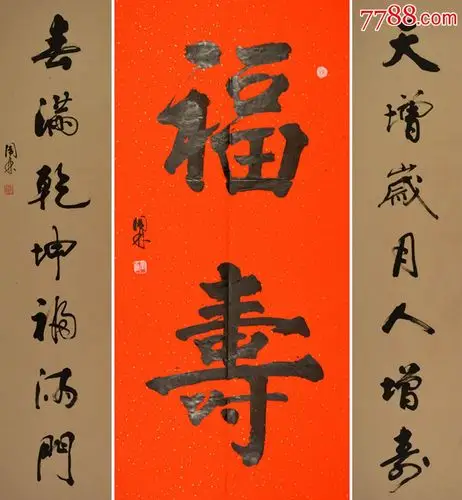 7788.com
天增歲月人增寿
福壽
春滿乾坤福满門